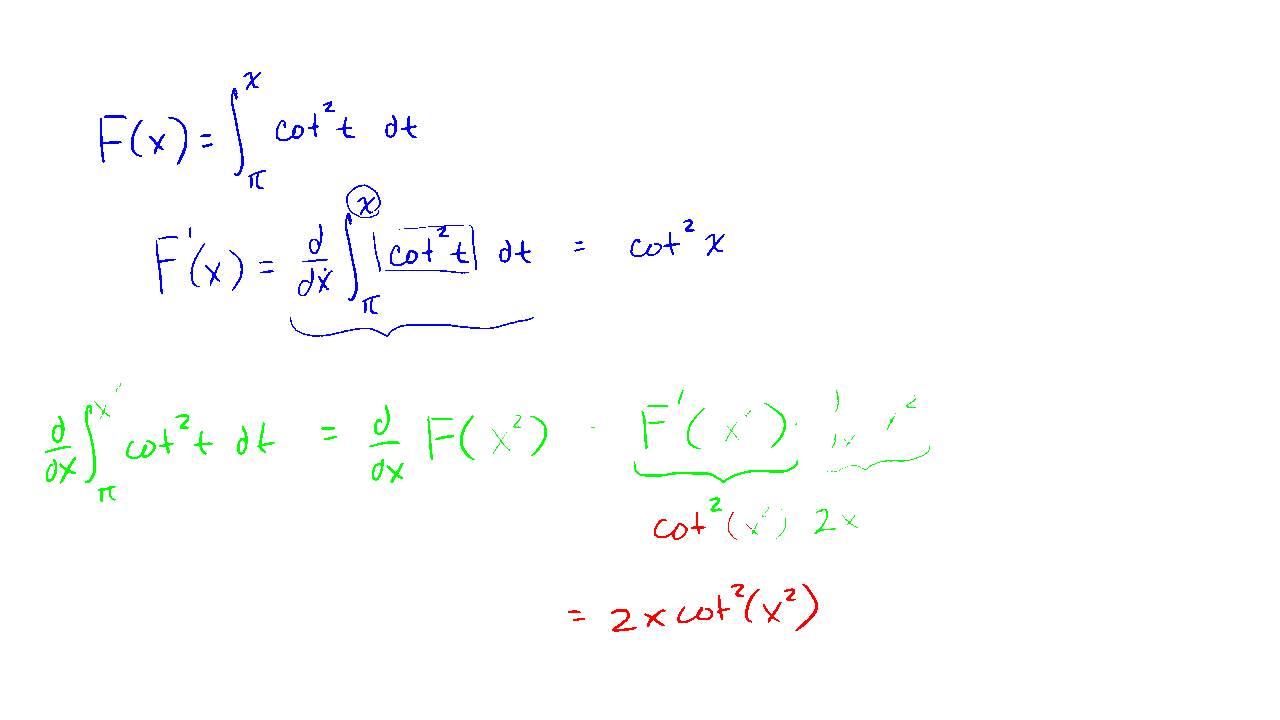 F(x) = ∫_π^x cot² t dt
F'(x) = d/dx ∫_π^x cot² t dt = cot² x
d/dx ∫_π^x cot² t dt = d/dx F(x²) F'(x) ·
cot²(x) 2x
= 2x cot²(x²)